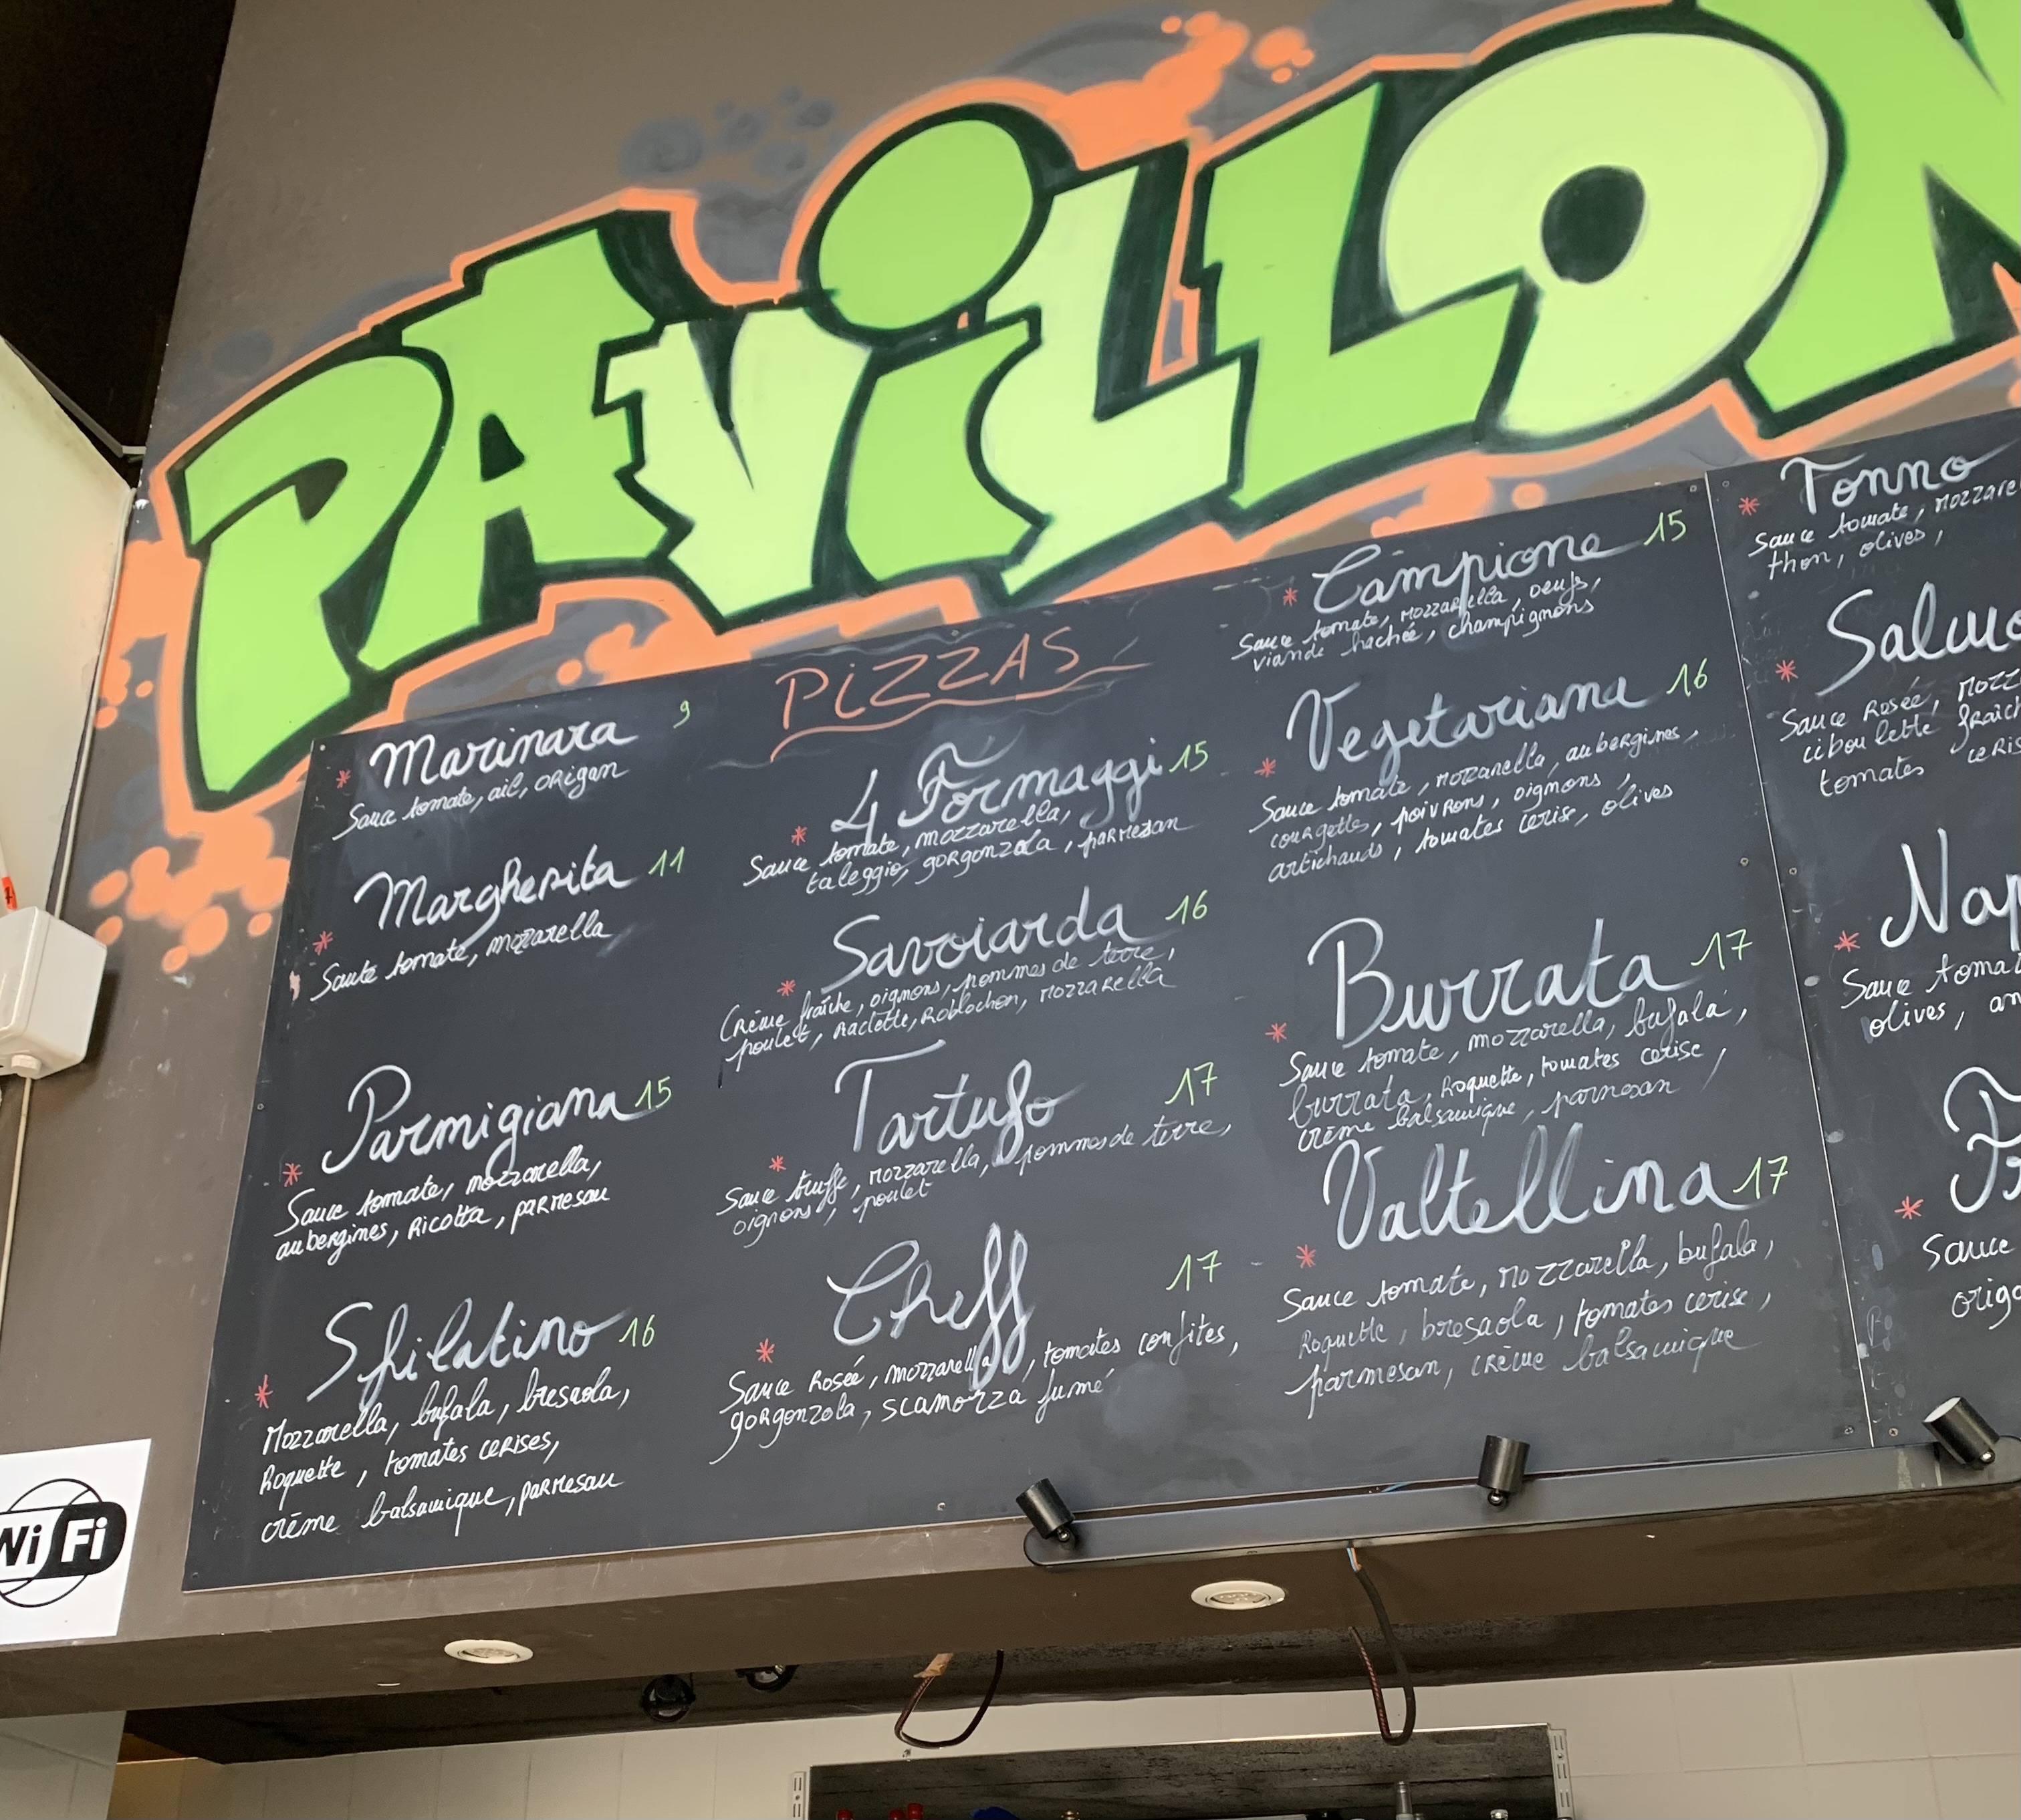 PAVILLON
PIZZAS
* Marinara 9
Sauce tomate, ail, origan
* Margherita 11
Sauce tomate, mozzarella
* Parmigiana 15
Sauce tomate, mozzarella,
aubergines, Ricotta, parmesan
* Sfilatino 16
Mozzarella, bufala, bresaola,
Roquette, tomates cerises,
crème balsamique, parmesan
* 4 Formaggi 15
Sauce tomate, mozzarella,
taleggio, gorgonzola, parmesan
* Savoiarda 16
Crème fraîche, oignons, pommes de terre,
poulet, raclette, Roblochon, mozzarella
* Tartufo 17
Sauce truffe, mozzarella, pommes de terre,
oignons, poulet
* Cheff 17
Sauce Rosée, mozzarella, tomates confites,
gorgonzola, scamorza fumé
* Campione 15
Sauce tomate, mozzarella, oeufs,
viande hachée, champignons
* Vegetariana 16
Sauce tomate, mozzarella, aubergines,
courgettes, poivrons, oignons,
artichauds, tomates cerise, olives
* Burrata 17
Sauce tomate, mozzarella, bufala,
burrata, Roquette, tomates cerise,
crème balsamique, parmesan
* Valtellina 17
Sauce tomate, mozzarella, bufala,
Roquette, bresaola, tomates cerise,
parmesan, crème balsamique
* Tonno
Sauce tomate, mozzare
thon, olives,
* Salmo
Sauce Rosée, mozz
ciboulette fraîch
tomates ceris
* Nap
Sauce tomat
olives, an
* Fr
Sauce
origa
WiFi